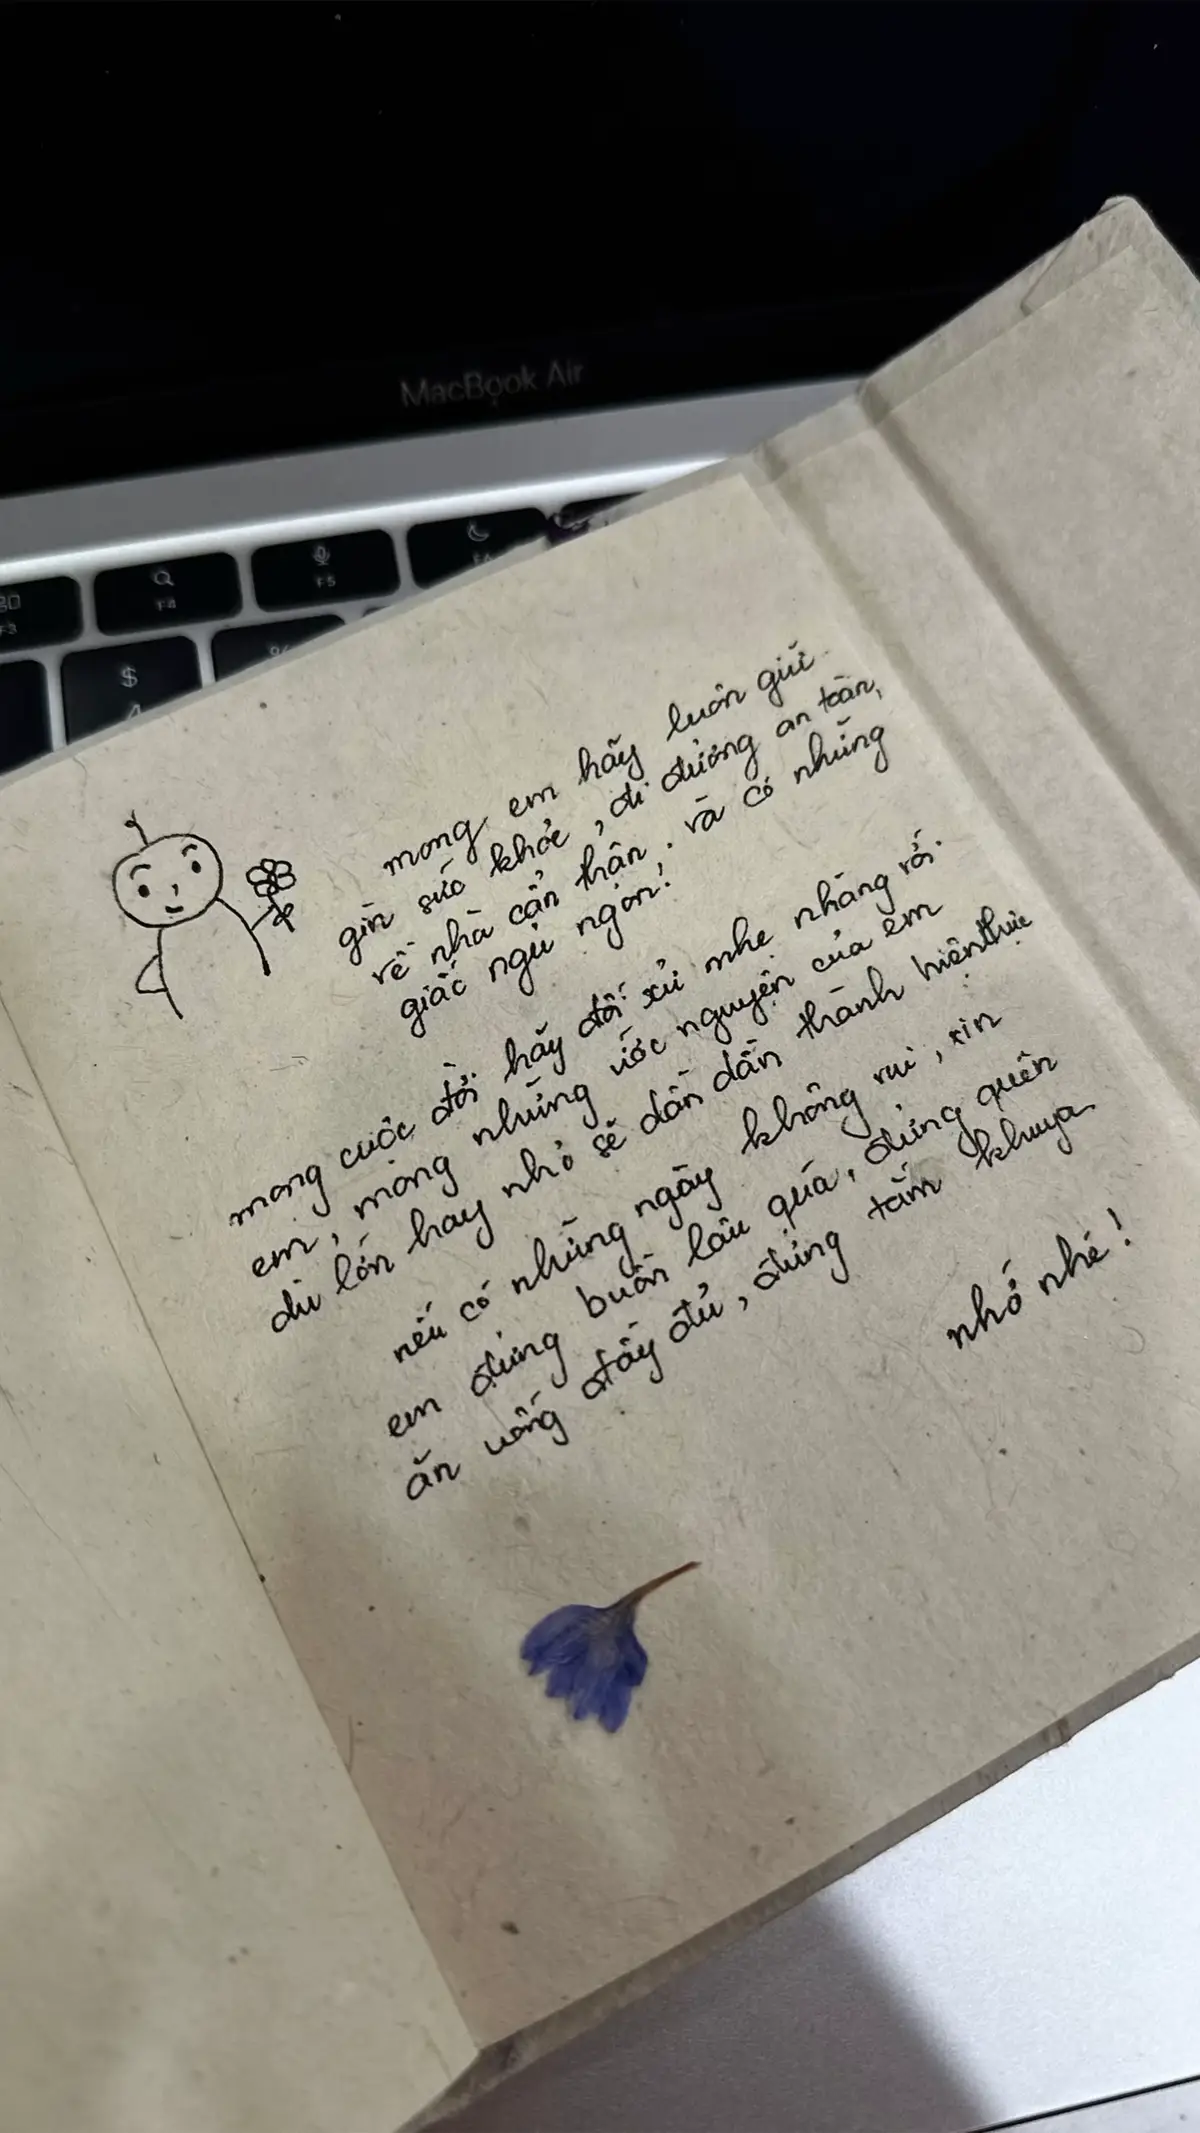 MacBook Air
F3
F4
F5
F6
$
4
%
mong em hãy luôn giữ
gìn sức khỏe, đi đường an toàn,
về nhà cẩn thận. và có những
giấc ngủ ngon!
mong cuộc đời hãy đối xử nhẹ nhàng với
em, mong những ước nguyện của em
dù lớn hay nhỏ sẽ dần dần thành hiện thực
nếu có những ngày không vui, xin
em đừng buồn lâu quá, đừng quên
ăn uống đầy đủ, đừng tắm khuya
nhớ nhé!